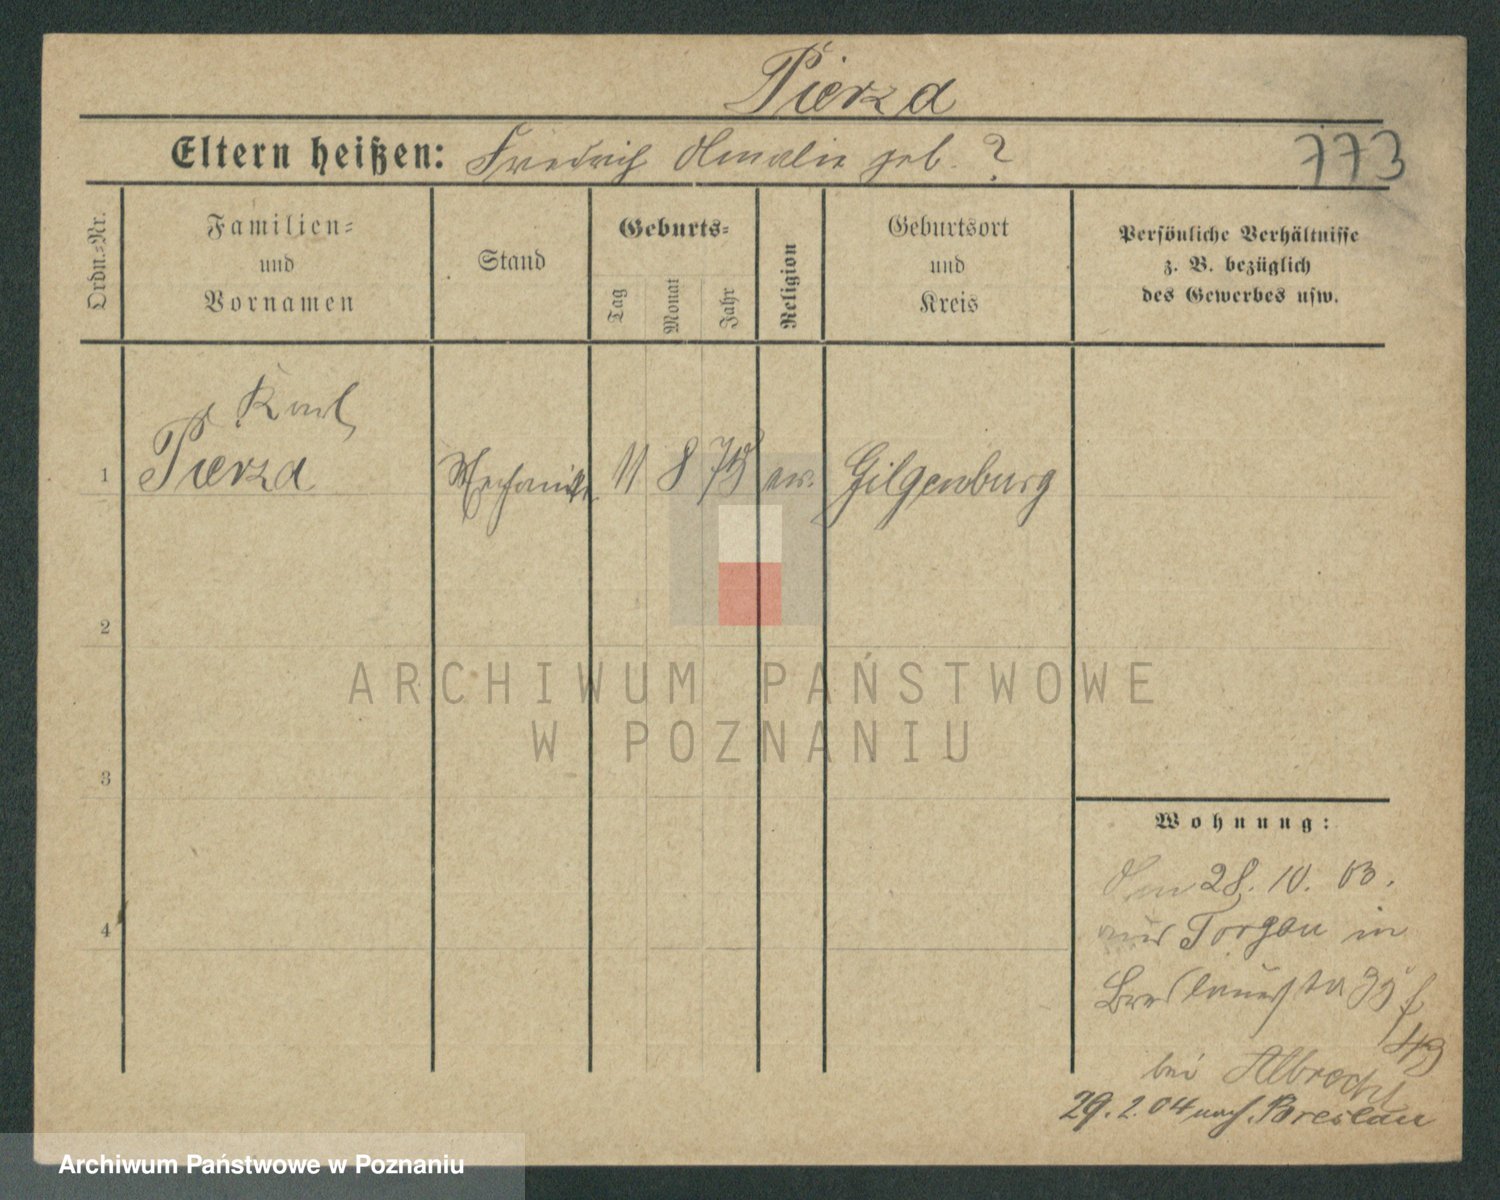 Pierza
Eltern heißen: Friedrich Amalie geb. ?
773
Ordn.=Nr.
Familien=
und
Vornamen
Stand
Geburts=
Tag
Monat
Jahr
Religion
Geburtsort
und
Kreis
Persönliche Verhältnisse
z. B. bezüglich
des Gewerbes usw.
Karl
1 Pierza Mechanik 11 8 75 ev. Gilgenburg
2
3
4
ARCHIWUM PAŃSTWOWE
W POZNANIU
Wohnung:
28. 10. 03.
aus Torgau in
Breslauer
bei Albrecht
29. 2. 04 nach Breslau
Archiwum Państwowe w Poznaniu